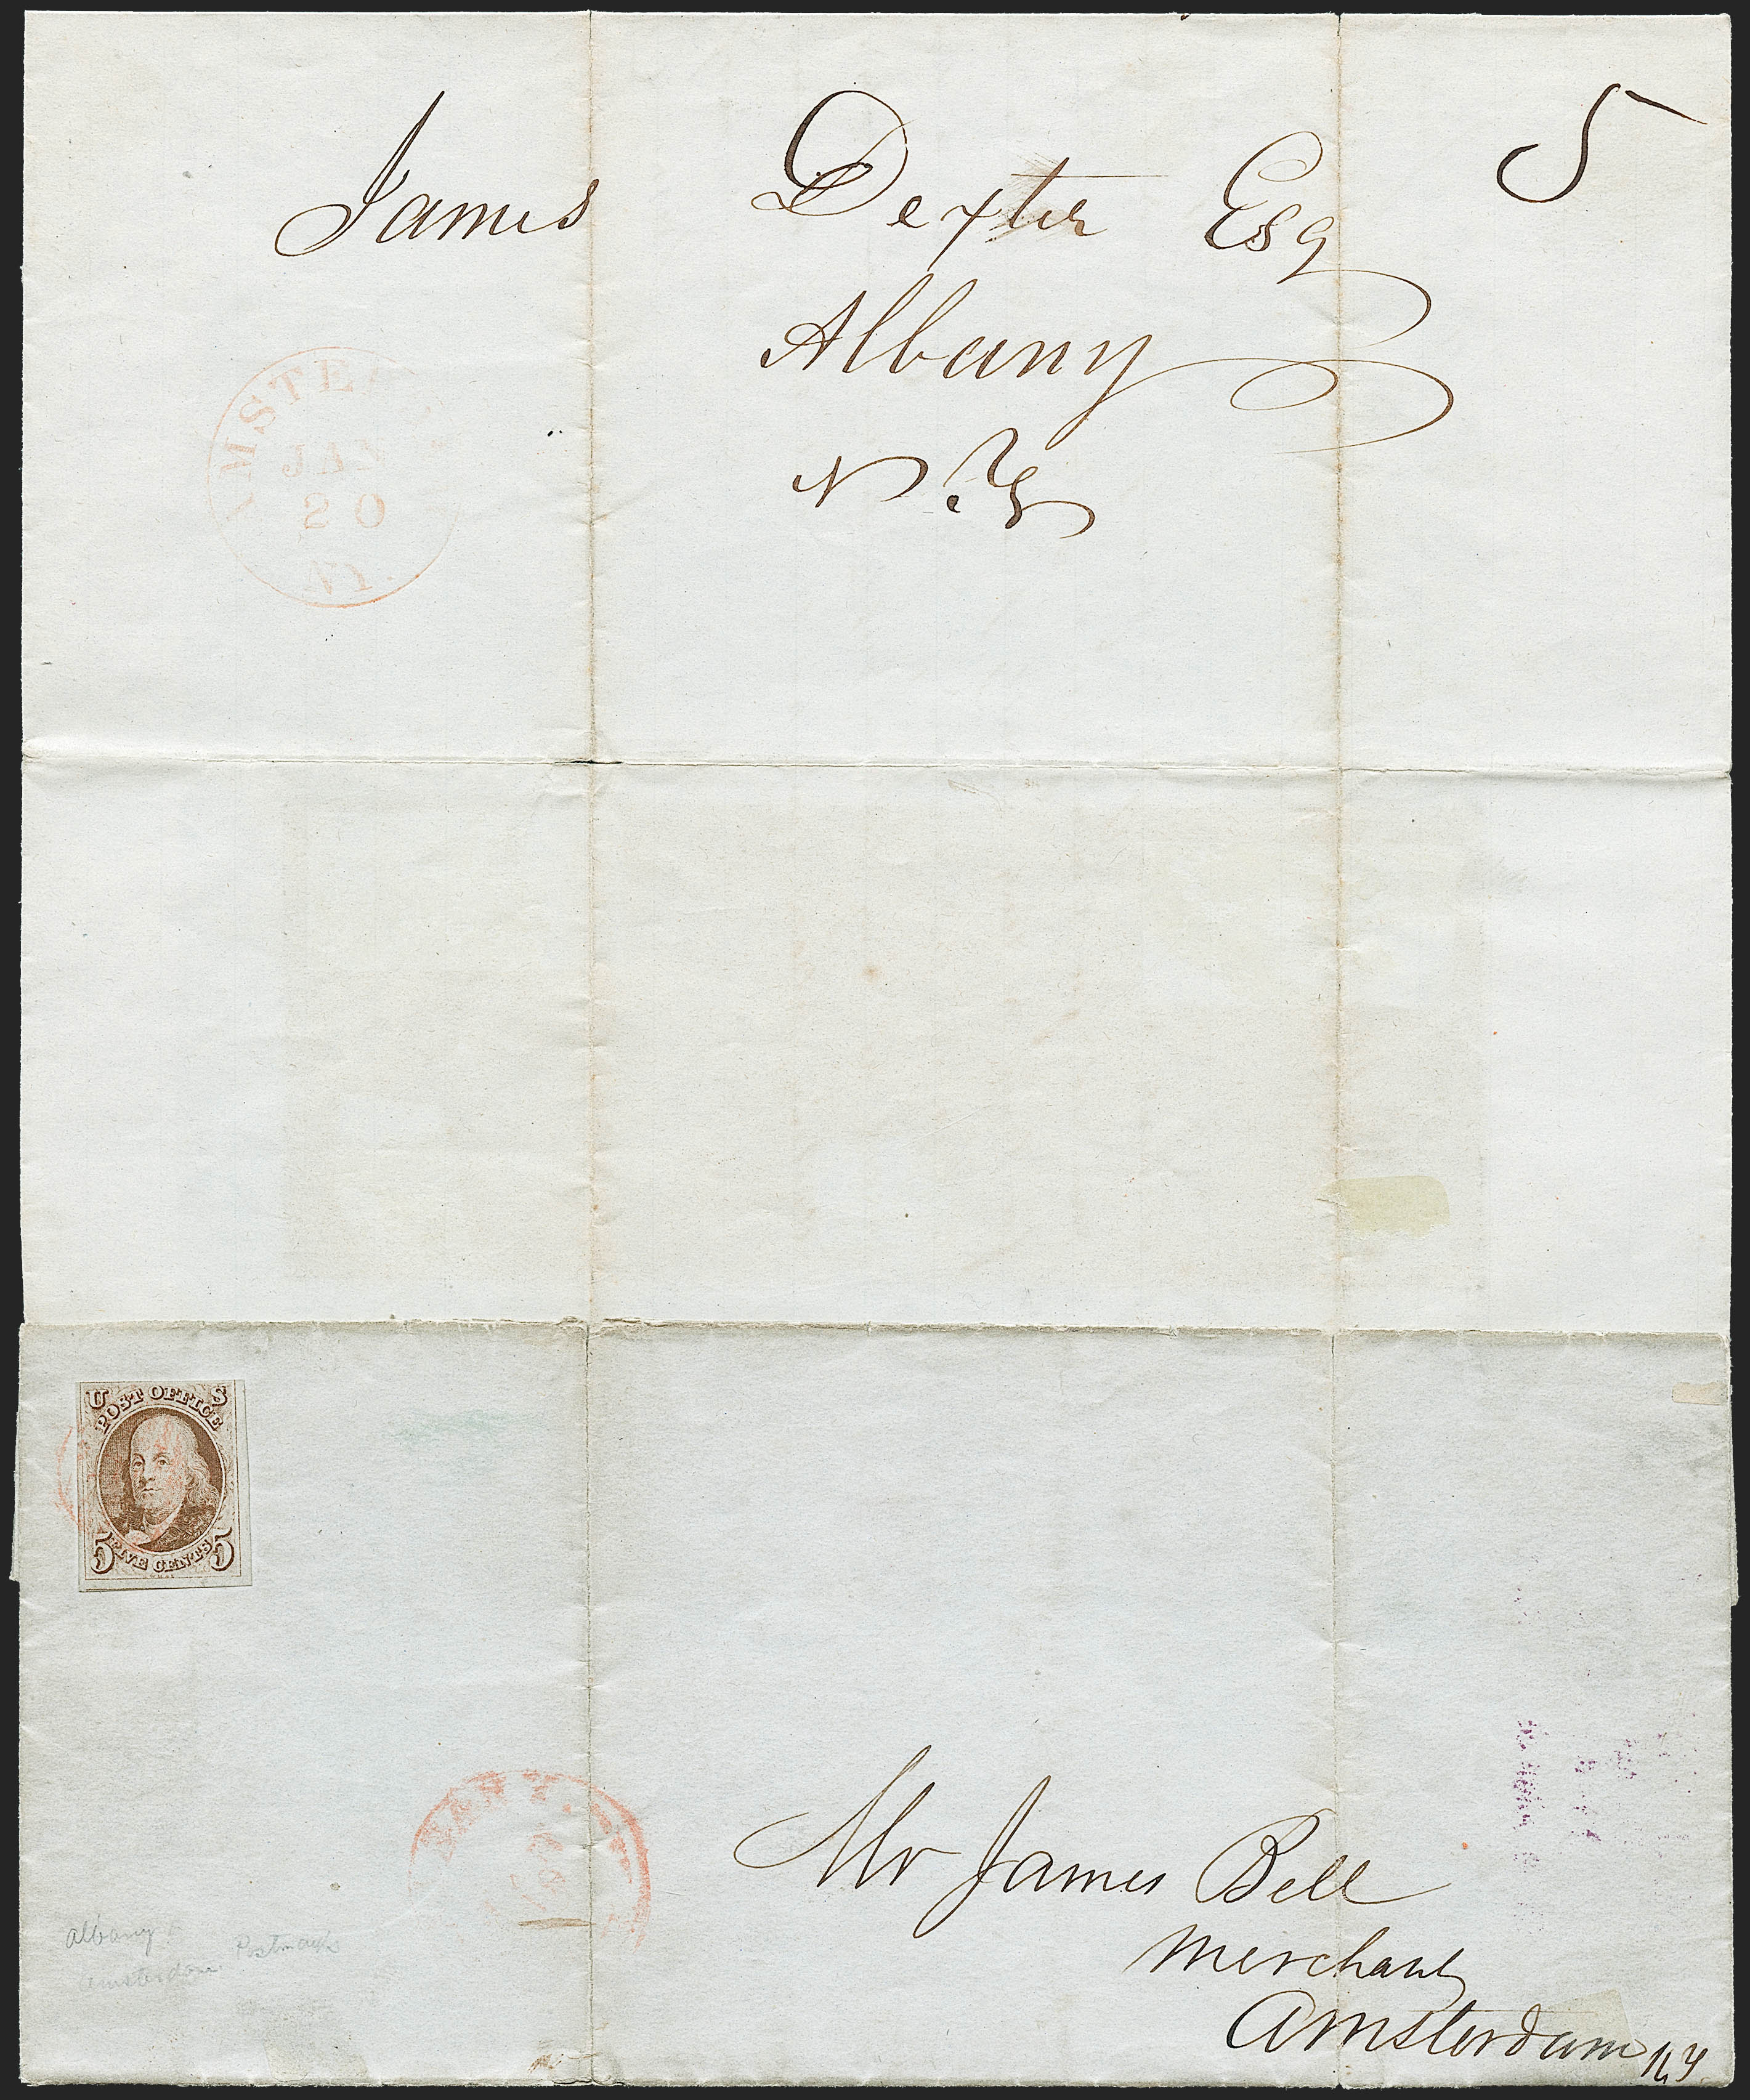 James Dexter Esq
5
Albany
N.Y
AMSTE
JAN
20
N.Y.
U S
POST OFFICE
5 FIVE CENTS 5
Mr James Bell
Merchant
Amsterdam N.Y.
albany
Postmarks
amsterdam